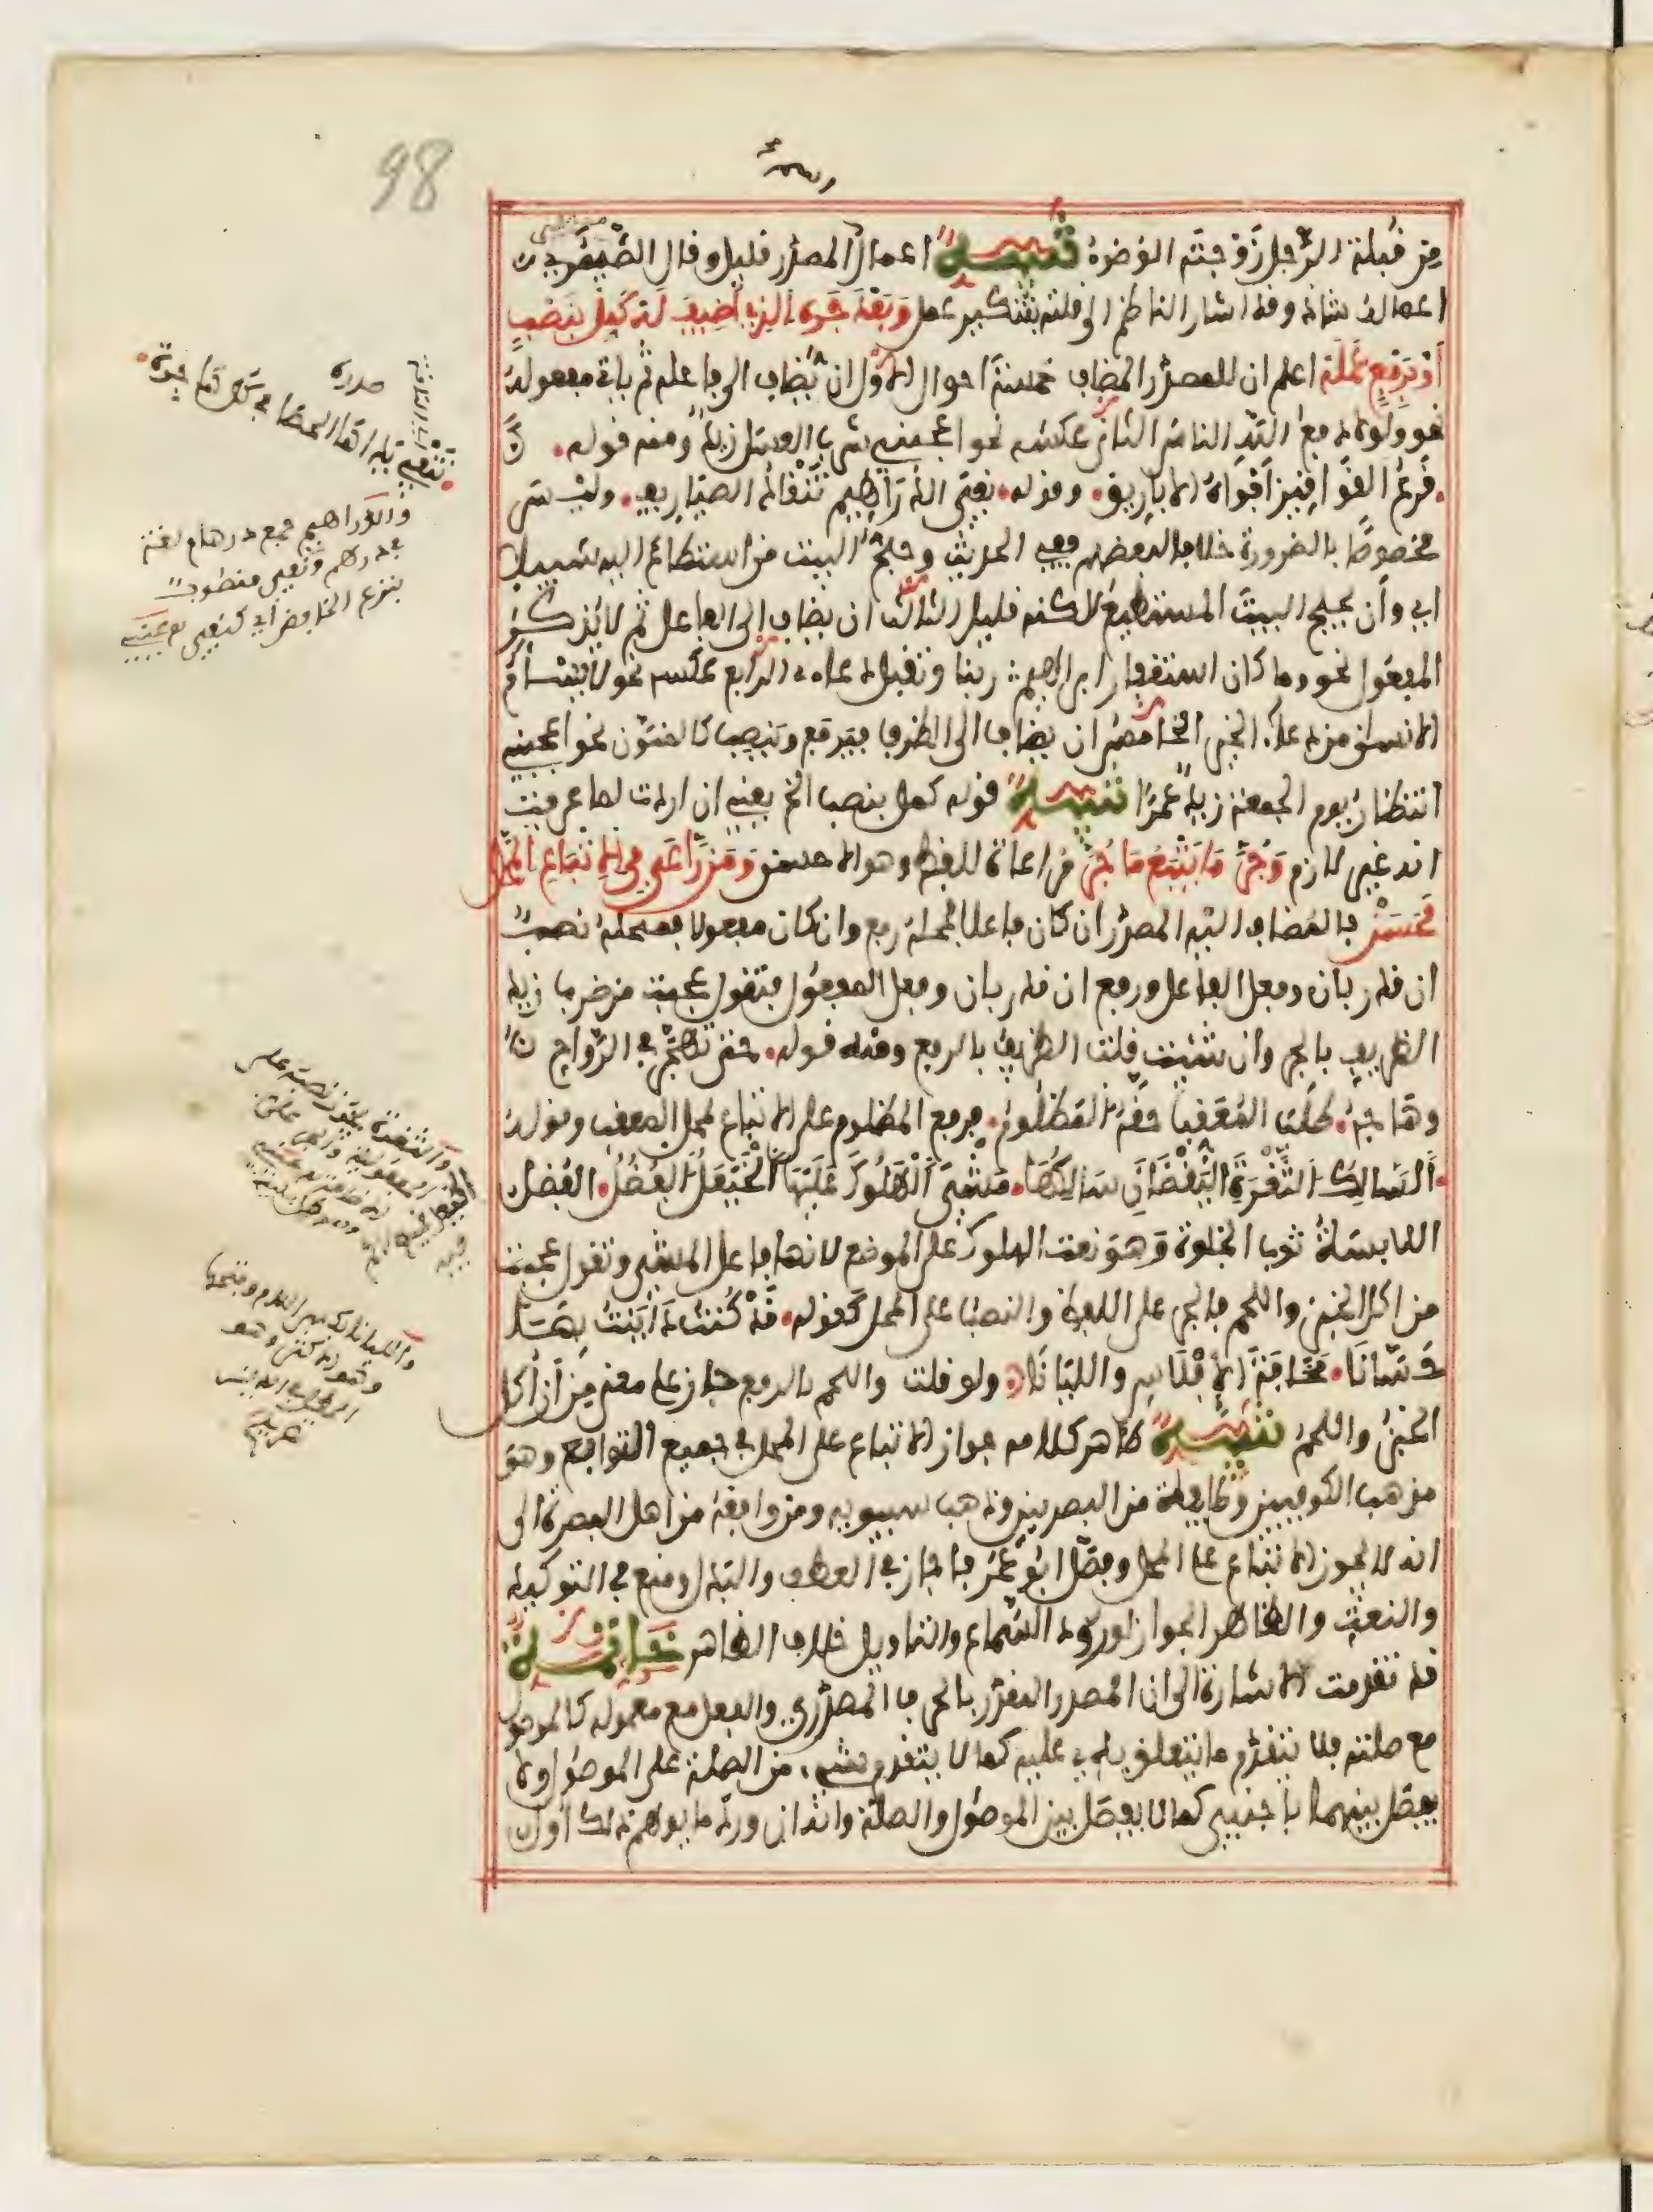 98
من قبلة الرجل زوجته الوضوء تنبيه اعمال المصدر قليل وقال الصيمري
اعماله شاذ وقد اشار الناظم الى قلته بتنكير عمل وبعد جره الذي أضيف له كمل بنصب
أو برفع عمله اعلم ان للمصدر المضاف خمسة احوال الاول ان يضاف الى فاعله ثم ياتي مفعوله
نحو ولولا دفع الله الناس الثاني عكسه نحو اعجبني شرب العسل زيد ومنه قوله.
قرع القواقيز أفواه الاباريق. وقوله. نفي الدراهيم تنقاد الصياريف. وليس
مخصوصا بالضرورة خلافا لبعضهم ففي الحديث وحج البيت من استطاع اليه سبيلا
اي وأن يحج البيت المستطيع لاكنه قليل الثالث ان يضاف الى الفاعل ثم لا يذكر
المفعول نحو وما كان استغفار ابراهيم ربنا وتقبل دعاء الرابع عكسه نحو لا يسأم
الانسان من دعاء الخير الخامس ان يضاف الى الظرف فيرفع وينصب كالمنون نحو اعجبني
انتظار يوم الجمعة زيد عمرا تنبيه قوله كمل بنصب الخ يعني ان اردت لما عرفت
انه غير لازم وجر ما يتبع ما جر مراعاة للفظ وهو الاحسن ومن راعى في الاتباع المحل
فحسن فالمضاف اليه المصدر ان كان فاعلا فمحله رفع وان كان مفعولا فمحله نصب
ان قدر بان وفعل الفاعل ورفع ان قدر بان وفعل المفعول فتقول عجبت من ضرب زيد
الظريف بالجر وان شئت قلت الظريف بالرفع ومنه قوله. حتى تهجر في الرواح
وهاجه. طلب المعقب حقه المظلوم. فرفع المظلوم على الاتباع لمحل المعقب وقوله
السالك الثغرة اليقظان سالكها. مشي الهلوك عليها الخيعل الفضل. الفضل
اللابسة ثوب الخلوة وهو نعت الهلوك على الموضع لانها فاعل المشي وتقول عجبت
من اكل الخبز واللحم فالجر على اللفظ والنصب على المحل كقوله. قد كنت داينت بها
حسانا. مخافة الافلاس والليانا. ولو قلت واللحم بالرفع جاز على معنى من أن أكل
الخبز واللحم تنبيه ظاهر كلامه جواز الاتباع على المحل في جميع التوابع وهو
مذهب الكوفيين وطايفة من البصريين وذهب سيبويه ومن وافقه من اهل البصرة الى
انه لا يجوز الاتباع على المحل وفصل ابو عمر فاجاز في العطف والبدل ومنع في التوكيد
والنعت والظاهر الجواز لورود السماع والتاويل خلاف الظاهر خاتمة
قد تقدمت الاشارة الى ان المصدر المقدر بالحرف المصدري والفعل مع معموله كالموصول
مع صلته فلا يتقدم ما يتعلق به عليه كما لا يتقدم شيء من الصلة على الموصول ولا
يفصل بينهما باجنبي كما لا يفصل بين الموصول والصلة وانه ان ورد ما يوهم ذلك اول
صدره
تنفي يداها الحصا في كل هاجرة
والدراهيم جمع درهام لغة
في درهم ونفي منصوب
بنزع الخافض أي كنفي